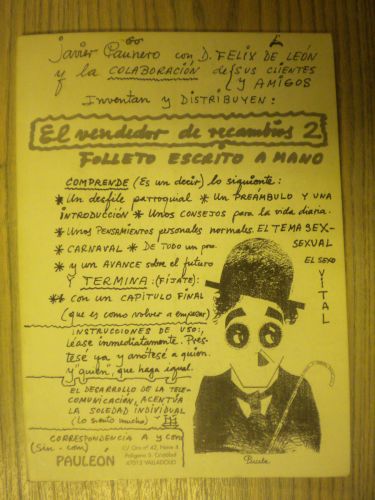 Javier Paunero con D. FELIX DE LEÓN
y la COLABORACIÓN de SUS CLIENTES
Y AMIGOS
Inventan y DISTRIBUYEN:
El vendedor de recambios 2
FOLLETO ESCRITO A MANO
COMPRENDE (Es un decir) lo siguiente:
* Un desfile parroquial * UN PREÁMBULO Y UNA
INTRODUCCIÓN * Unos CONSEJOS para la vida diaria.
* Unos PENSAMIENTOS personales normales. EL TEMA SEX-
SEXUAL
* CARNAVAL * DE TODO un poco.
EL SEXO
VITAL
* y un AVANCE sobre el futuro
Y TERMINA: (FÍJATE):
** con un CAPÍTULO FINAL
(que es como volver a empezar)
INSTRUCCIONES DE USO:
Léase inmediatamente. Pres-
tesé ya y anótesé a quien
y "quien", que haga igual.
EL DESARROLLO DE LA TELE-
COMUNICACIÓN, ACENTÚA
LA SOLEDAD INDIVIDUAL
(Lo siento mucho)
CORRESPONDENCIA A y con:
(Sin - com)
PAULEÓN
C/ Oro nº 42, Nave 4
Polígono S. Cristóbal
47012 VALLADOLID